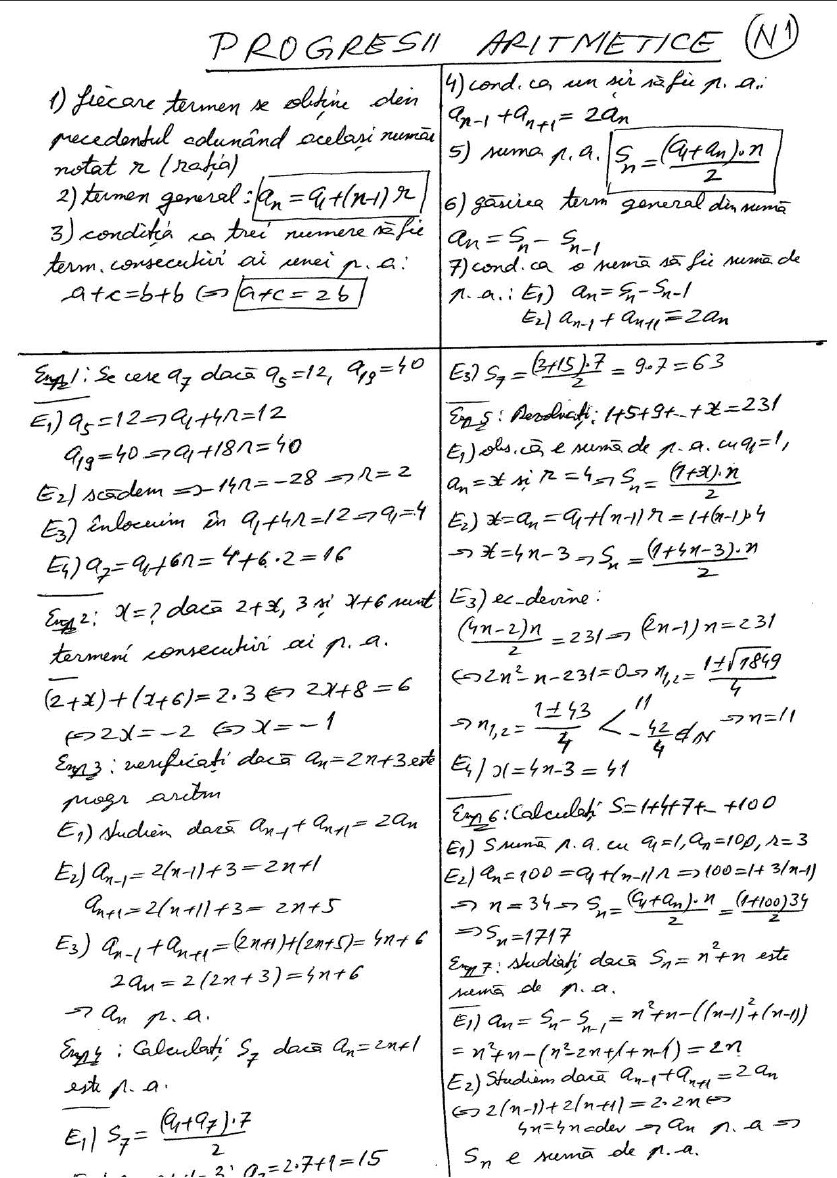 PROGRESII ARITMETICE (N1)
1) fiecare termen se obține din
precedentul adunând același număr
notat r (rația)
2) termen general: an = a1+(n-1)r
3) condiția ca trei numere să fie
term. consecutivi ai unei p.a:
a+c=b+b ⇔ a+c=2b
4) cond. ca un șir să fie p.a.:
an-1 + an+1 = 2an
5) suma p.a. Sn = (a1+an)·n / 2
6) găsirea term general din sumă
an = Sn - Sn-1
7) cond. ca o sumă să fie sumă de
p.a.: E1) an = Sn - Sn-1
E2) an-1 + an+1 = 2an
Exp1: Se cere a7 dacă a5=12, a19=40
E1) a5=12 ⇒ a1+4r=12
a19=40 ⇒ a1+18r=40
E2) scădem ⇒ -14r=-28 ⇒ r=2
E3) înlocuim în a1+4r=12 ⇒ a1=4
E4) a7=a1+6r=4+6·2=16
Exp2: x=? dacă 2+x, 3 și x+6 sunt
termeni consecutivi ai p.a.
(2+x)+(x+6)=2·3 ⇔ 2x+8=6
⇔ 2x=-2 ⇔ x=-1
Exp3: verificați dacă an=2n+3 este
progr aritm
E1) studiem dacă an-1 + an+1 = 2an
E2) an-1=2(n-1)+3=2n+1
an+1=2(n+1)+3=2n+5
E3) an-1 + an+1=(2n+1)+(2n+5)=4n+6
2an=2(2n+3)=4n+6
⇒ an p.a.
Exp4: Calculați S7 dacă an=2n+1
este p.a.
E1) S7 = (a1+a7)·7 / 2
a7=2·7+1=15
E3) S7 = (3+15)·7 / 2 = 9·7=63
Exp5: Rezolvați: 1+5+9+...+x=231
E1) obs. că e sumă de p.a. cu a1=1,
an=x și r=4 ⇒ Sn = (1+x)·n / 2
E2) x=an=a1+(n-1)r=1+(n-1)·4
⇒ x=4n-3 ⇒ Sn = (1+4n-3)·n / 2
E3) ec. devine:
(4n-2)n / 2 = 231 ⇒ (2n-1)n=231
⇔ 2n²-n-231=0 ⇒ n1,2 = 1±√1849 / 4
⇒ n1,2 = 1±43 / 4 < 11 -42/4 ∉ N ⇒ n=11
E4) x=4n-3=41
Exp6: Calculați S=1+4+7+...+100
E1) S sumă p.a. cu a1=1, an=100, r=3
E2) an=100=a1+(n-1)r ⇒ 100=1+3(n-1)
⇒ n=34 ⇒ Sn = (a1+an)·n / 2 = (1+100)34 / 2
⇒ Sn=1717
Exp7: studiați dacă Sn=n²+n este
sumă de p.a.
E1) an=Sn-Sn-1=n²+n-((n-1)²+(n-1))
=n²+n-(n²-2n+1+n-1)=2n
E2) Studiem dacă an-1+an+1=2an
⇔ 2(n-1)+2(n+1)=2·2n ⇔
4n=4n adev ⇒ an p.a ⇒
Sn e sumă de p.a.